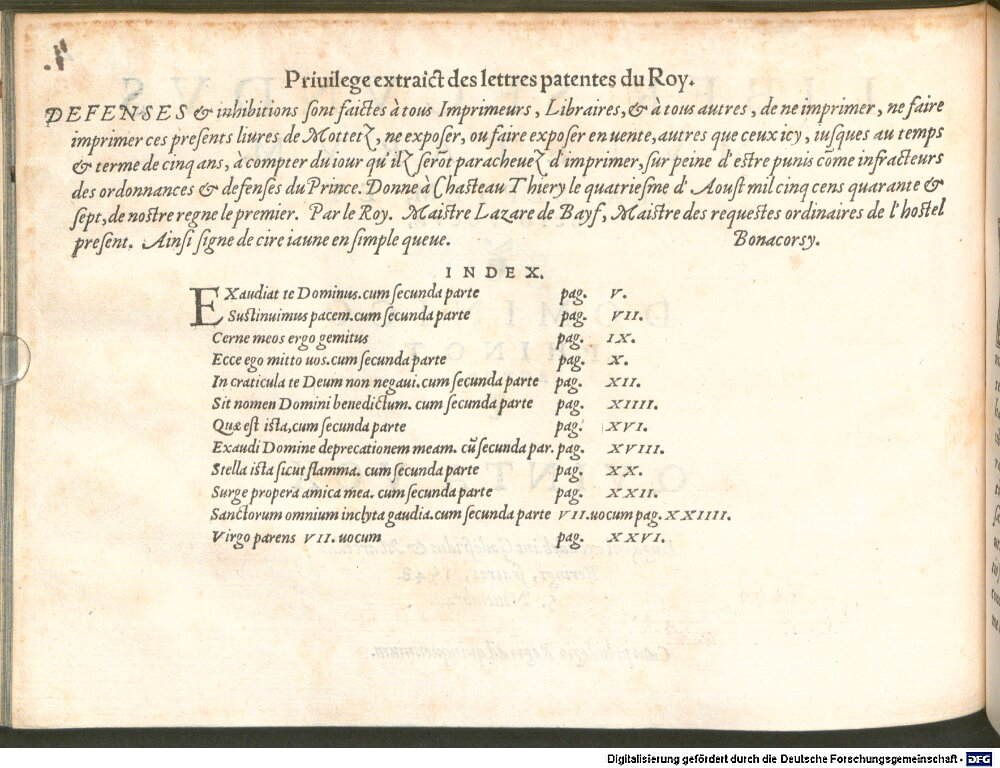 Priuilege extraict des lettres patentes du Roy.
DEFENSES & inhibitions sont faictes à tous Imprimeurs, Libraires, & à tous autres, de ne imprimer, ne faire
imprimer ces presents liures de Mottetz, ne exposer, ou faire exposer en uente, autres que ceux icy, iusques au temps
& terme de cinq ans, à compter du iour qu'ilz serõt paracheuez d'imprimer, sur peine d'estre punis cõme infracteurs
des ordonnances & defenses du Prince. Donne à Chasteau Thiery le quatriesme d'Aoust mil cinq cens quarante &
sept, de nostre regne le premier. Par le Roy. Maistre Lazare de Bayf, Maistre des requestes ordinaires de l'hostel
present. Ainsi signe de cire iaune en simple queue. Bonacorsy.
INDEX.
EXaudiat te Dominus. cum secunda parte pag. V.
Sustinuimus pacem. cum secunda parte pag. VII.
Cerne meos ergo gemitus pag. IX.
Ecce ego mitto uos. cum secunda parte pag. X.
In craticula te Deum non negaui. cum secunda parte pag. XII.
Sit nomen Domini benedictum. cum secunda parte pag. XIIII.
Quæ est ista, cum secunda parte pag. XVI.
Exaudi Domine deprecationem meam. cũ secunda par. pag. XVIII.
Stella ista sicut flamma. cum secunda parte pag. XX.
Surge propera amica mea. cum secunda parte pag. XXII.
Sanctorum omnium inclyta gaudia. cum secunda parte VII. uocum pag. XXIIII.
Virgo parens VII. uocum pag. XXVI.
Digitalisierung gefördert durch die Deutsche Forschungsgemeinschaft - DFG